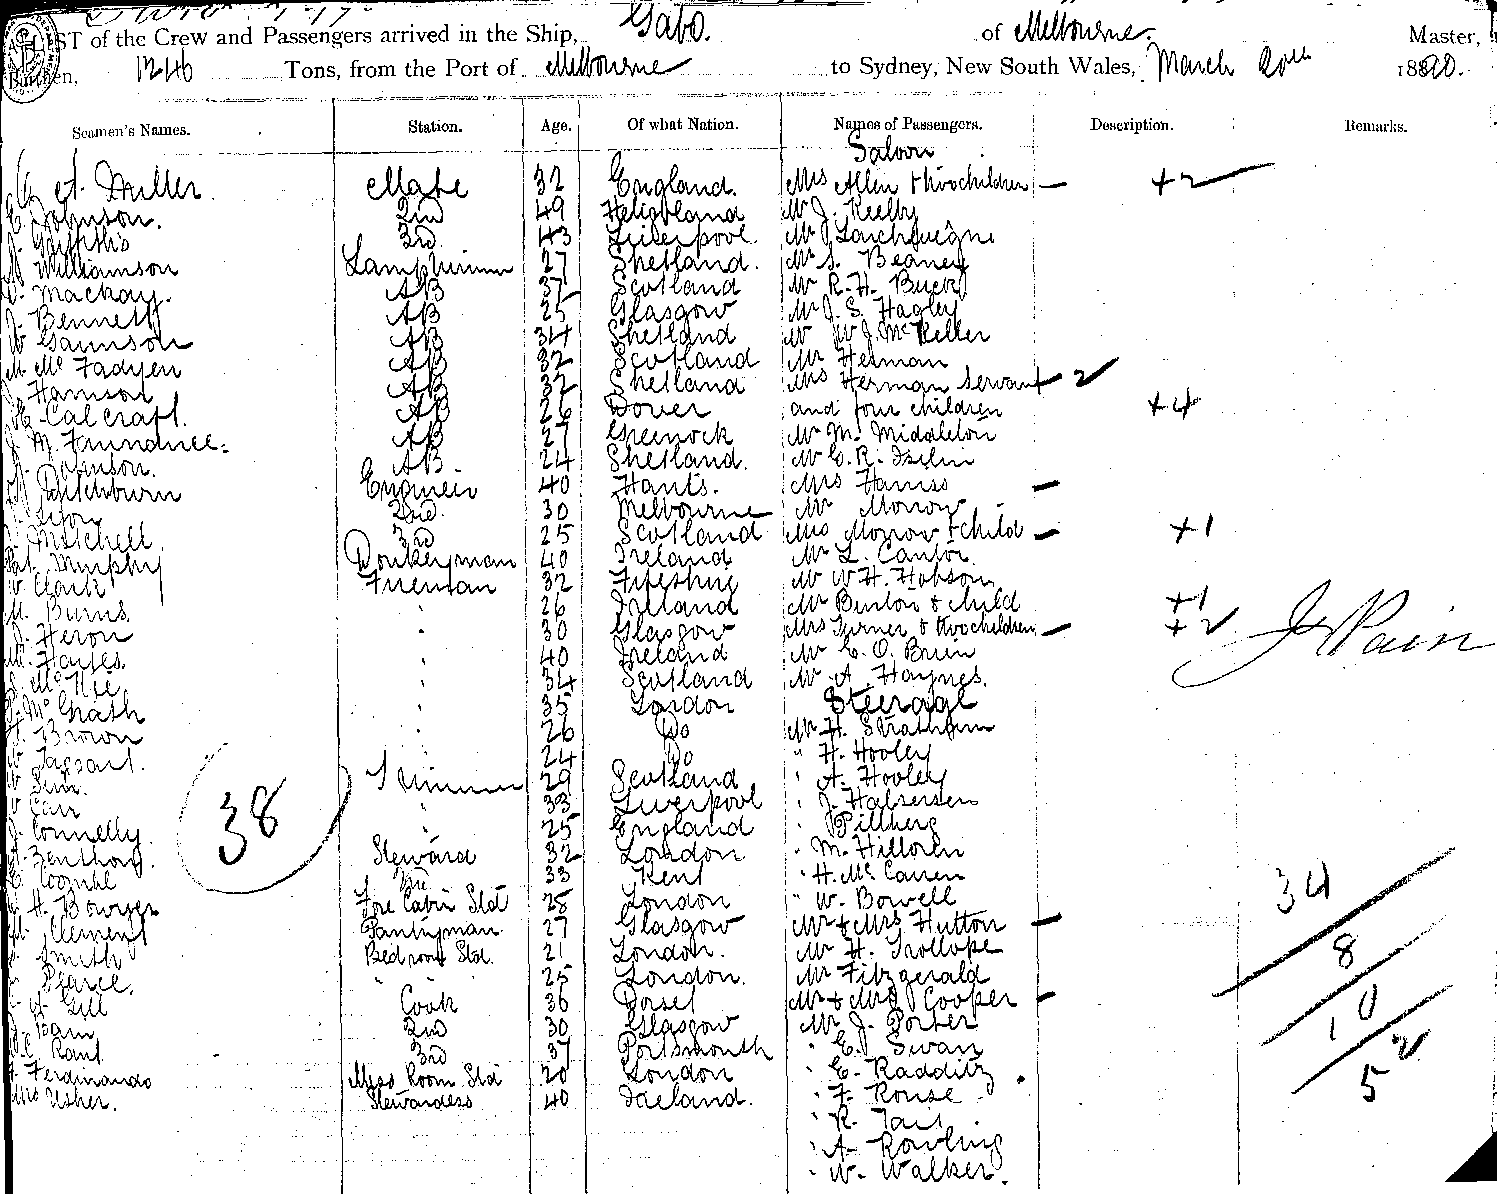 LIST of the Crew and Passengers arrived in the Ship, Gabo. of Melbourne. Master,
Burthen, 1246 Tons, from the Port of Melbourne to Sydney, New South Wales, March 20th 1890.
Seamen's Names. Station. Age. Of what Nation. Names of Passengers. Description. Remarks.
Saloon
A. Miller Mate 32 England. Mrs Allen & two children +2
Johnson. 2nd 49 Heligoland Mr J. Reelby
Griffiths 3rd 43 Liverpool. Mr J
Williamson Lamptrimmer 27 Shetland. Mr S. Beaney
Mackay. AB 37 Scotland Mr R. H. Buck
J. Bennett AB 25 Glasgow Mr J. S. Hagley
W Gaunson AB 34 Shetland Mr W J. McKeller
M Mc Fadyen AB 32 Scotland Mr Herman
Harrison AB 32 Shetland Mrs Herman servant 2
Calcraft. AB 26 Dover and four children +4
J. M. AB 27 Greenock Mr M. Middleton
Johnson. AB. 24 Shetland. Mr C. R. Iselin
Pitchburn Engineer 40 Hants. Mrs Harriss
2nd. 30 Melbourne Mr Morrow
Mitchell 3rd 25 Scotland Mrs Morrow & child +1
Pat. Murphy Donkeyman 40 Ireland Mr L. Cantor
W Clark Fireman 32 Fifeshire Mr W H. Hobson
M. Burns 26 Ireland Mr Burton & child +1
Heron 30 Glasgow Mrs Turner & two children +2 J Pain
M. Hayes. 40 Ireland Mr C. O. Brien
Mc Kie 34 Scotland Mr A. Haynes.
P. McGrath 35 London Steerage
Brown 26 Do Mr H. Strathern
W Taggart. 24 Do " H. Hooley
W Sim. Trimmer 29 Scotland " A. Hooley
W Carr 33 Liverpool " J. Halversen
J. Connelly. 25 England Pillberg
Zenthony. Steward 32 London " M. Hilloren
38
Coombe 2nd 33 Kent " H. Mc Carren
H. Bowyer Fore Cabin Std 28 London " W. Bowell 34
Clement Pantryman 27 Glasgow Mr & Mrs Hutton
Smith Bedroom Std. 21 London. Mr H. Trollope 8
Pearce. " " 25 London. Mr Fitzgerald
Gill Cook 36 Dorset Mr & Mrs J Cooper 10
Bain 2nd 30 Glasgow Mr J. Porter
Rant 3rd 37 Portsmouth " E. Swan 52
Ferdinando Mess Room Std 20 London " E. Radditz
Mrs Usher. Stewardess 40 Ireland. " F. Rouse
" R. Tait.
" A. Rowling
" W. Walker.